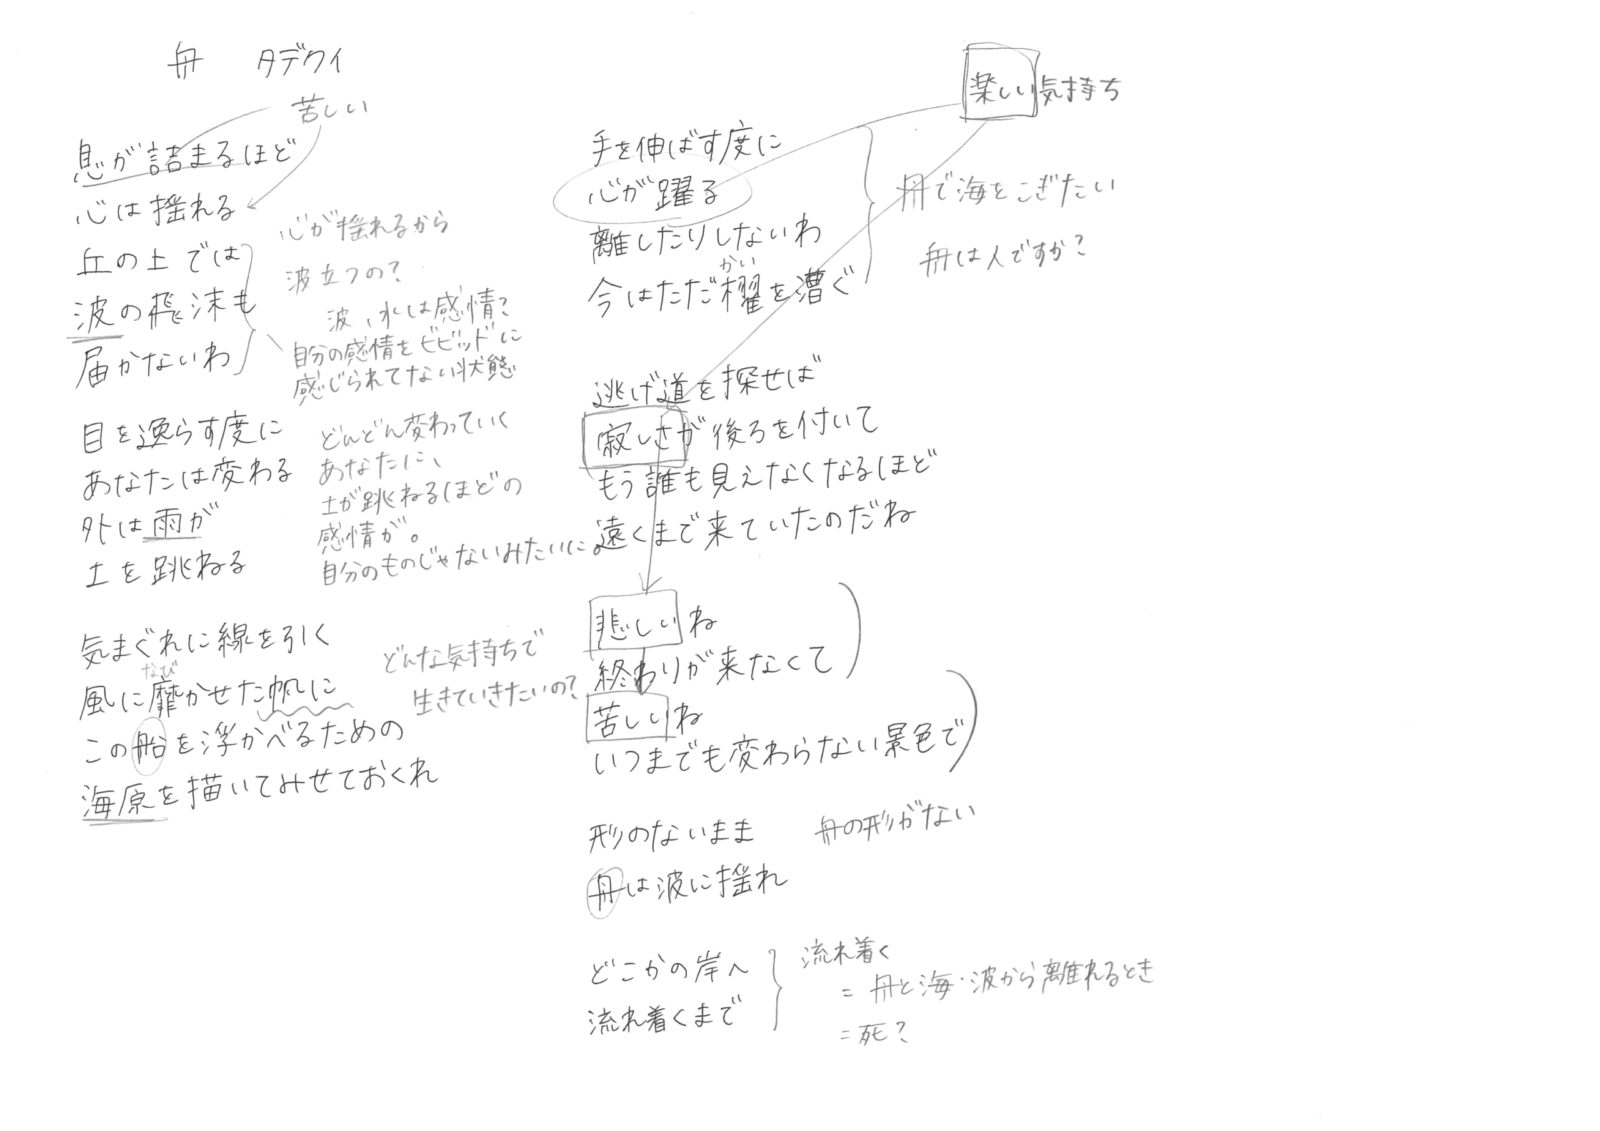 舟　タデクイ
苦しい
息が詰まるほど
心は揺れる
丘の上では
波の飛沫も
届かないわ
心が揺れるから
波立つの？
波、水は感情？
自分の感情をビビッドに
感じられてない状態
目を逸らす度に
あなたは変わる
外は雨が
土を跳ねる
どんどん変わっていく
あなたに、
土が跳ねるほどの
感情が。
自分のものじゃないみたいに。
気まぐれに線を引く
なび
風に靡かせた帆に
この船を浮かべるための
海原を描いてみせておくれ
どんな気持ちで
生きていきたいの？
楽しい気持ち
手を伸ばす度に
心が躍る
離したりしないわ
かい
今はただ櫂を漕ぐ
舟で海をこぎたい
舟は人ですか？
逃げ道を探せば
寂しさが後ろを付いて
もう誰も見えなくなるほど
遠くまで来ていたのだね
悲しいね
終わりが来なくて
苦しいね
いつまでも変わらない景色で
形のないまま
舟は波に揺れ
舟の形がない
どこかの岸へ
流れ着くまで
流れ着く
＝舟と海・波から離れるとき
＝死？